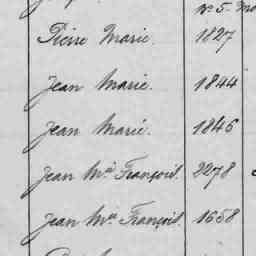 No 5. Mo
Pierre Marie. 1827
Jean Marie. 1844
Jean Marie. 1846
Jean Mie François. 2278
Jean Mie François. 1658